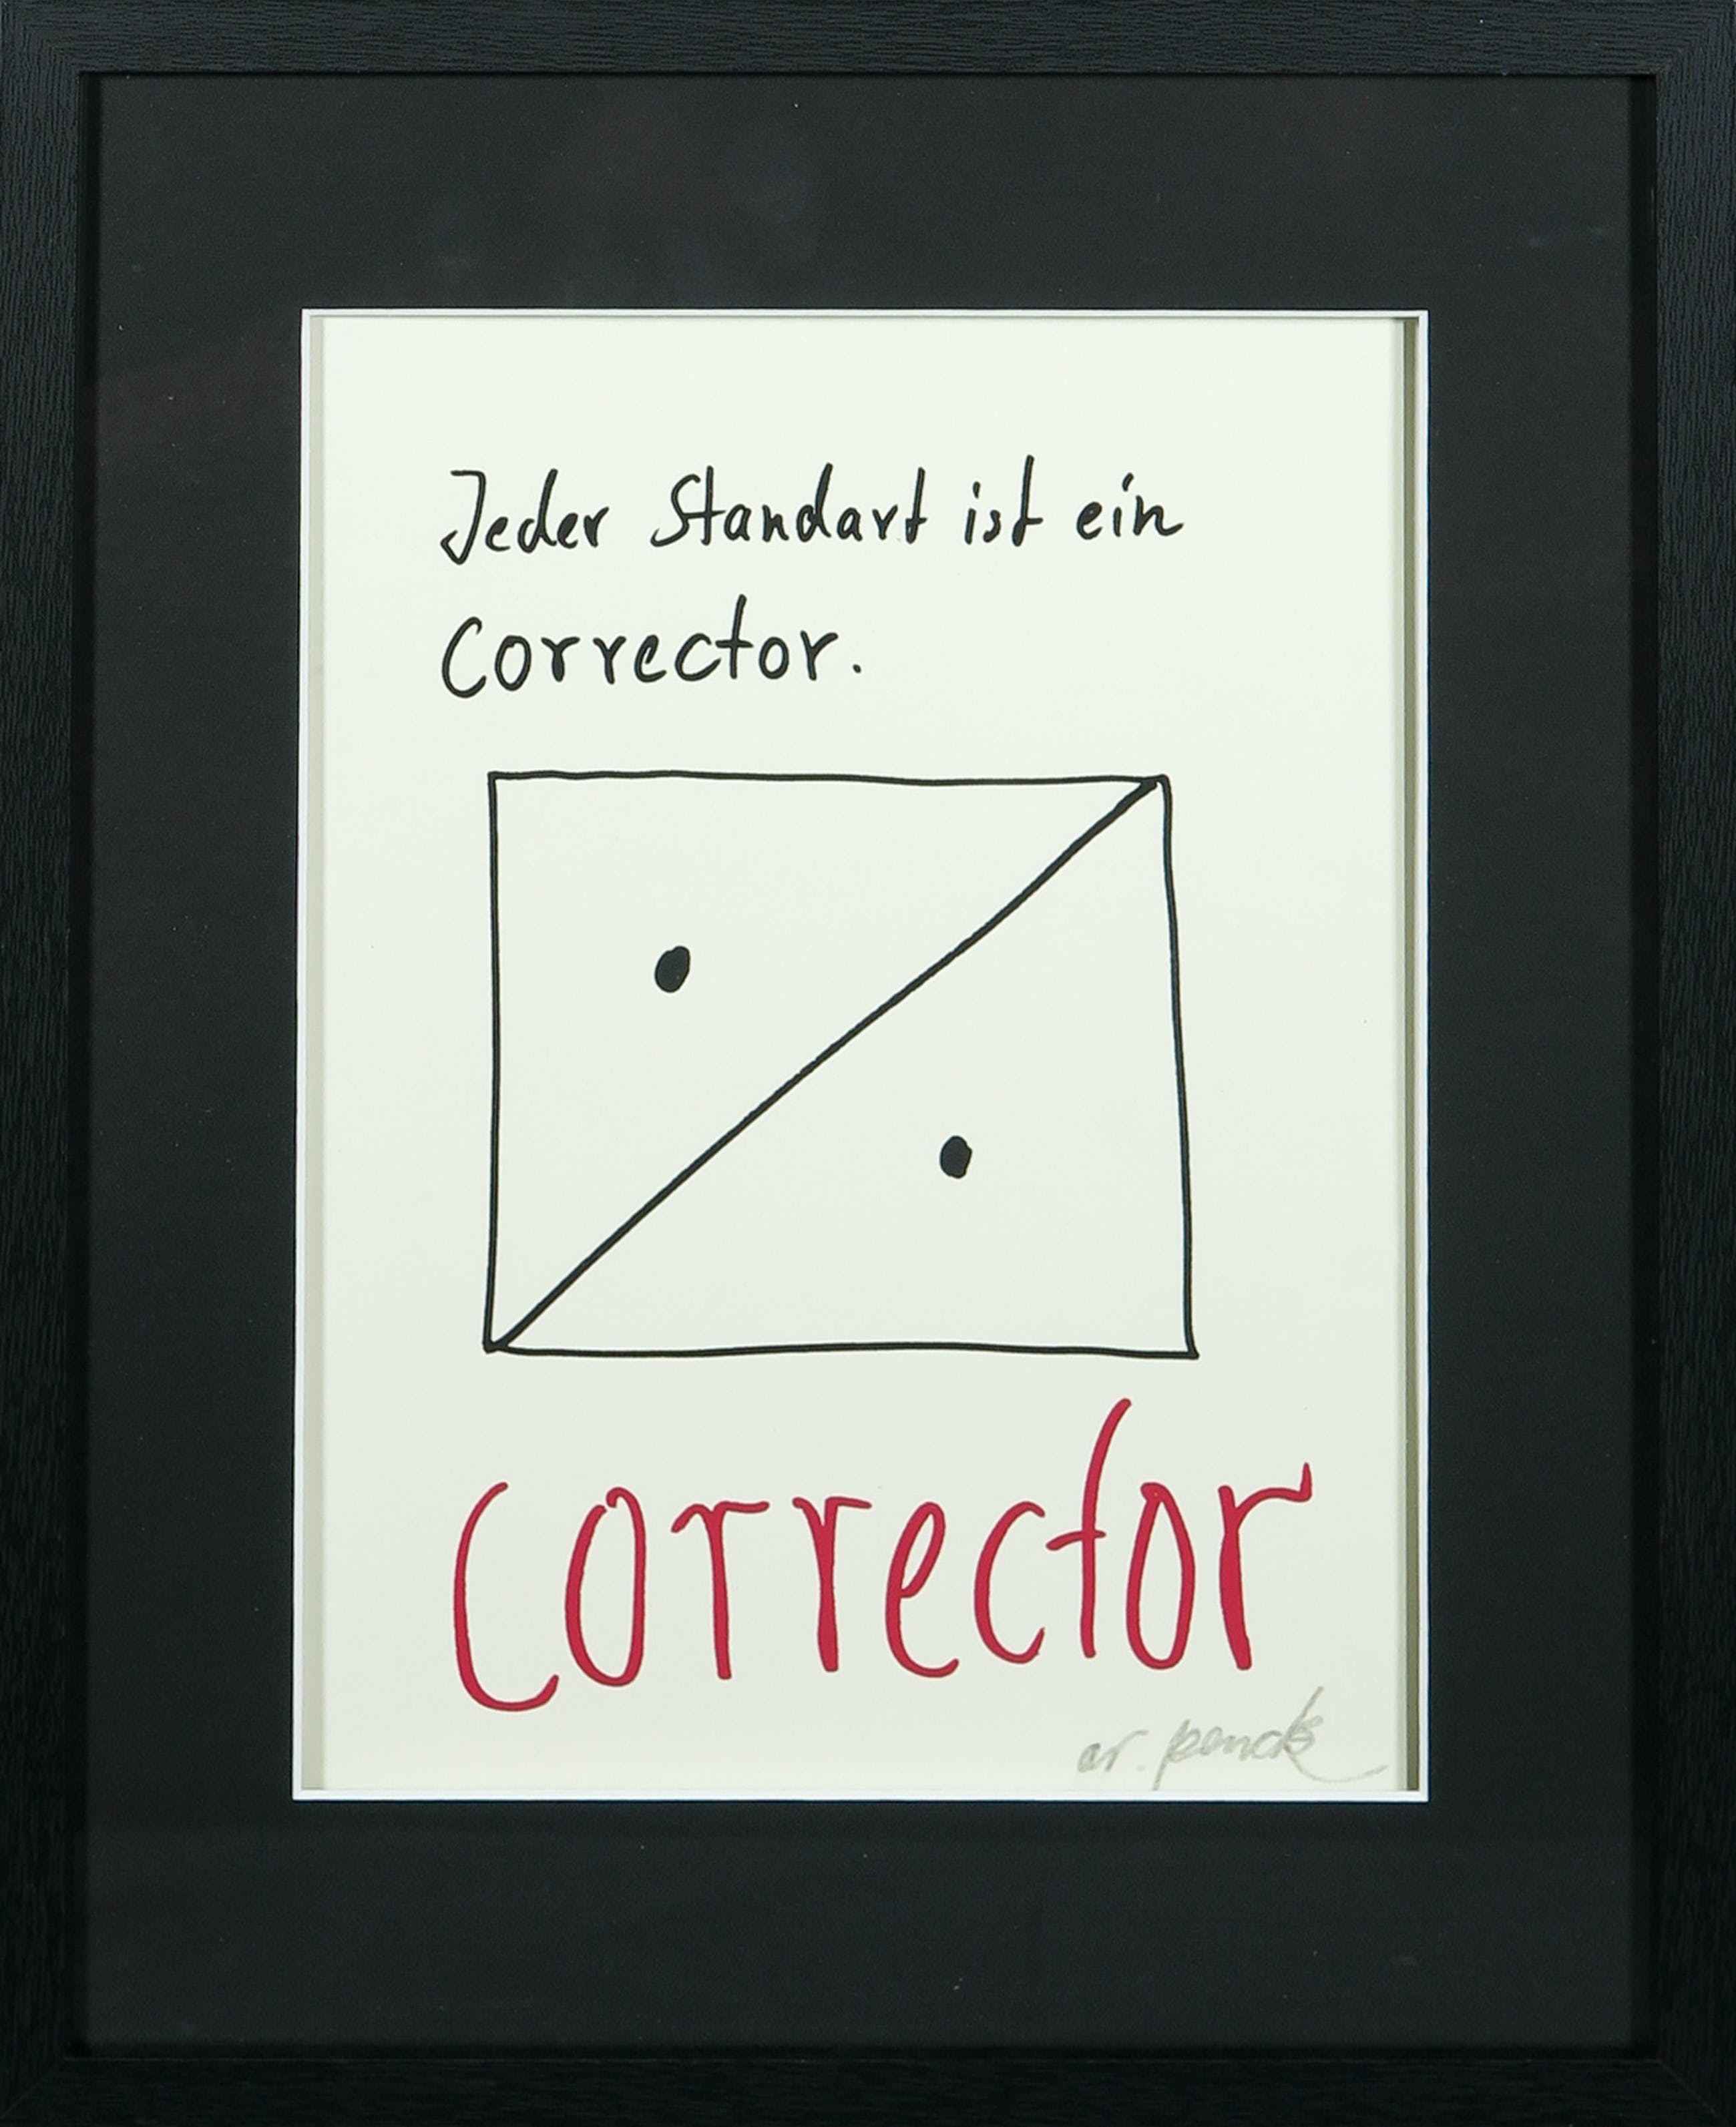 Jeder Standart ist ein
Corrector.
corrector
ar. penck